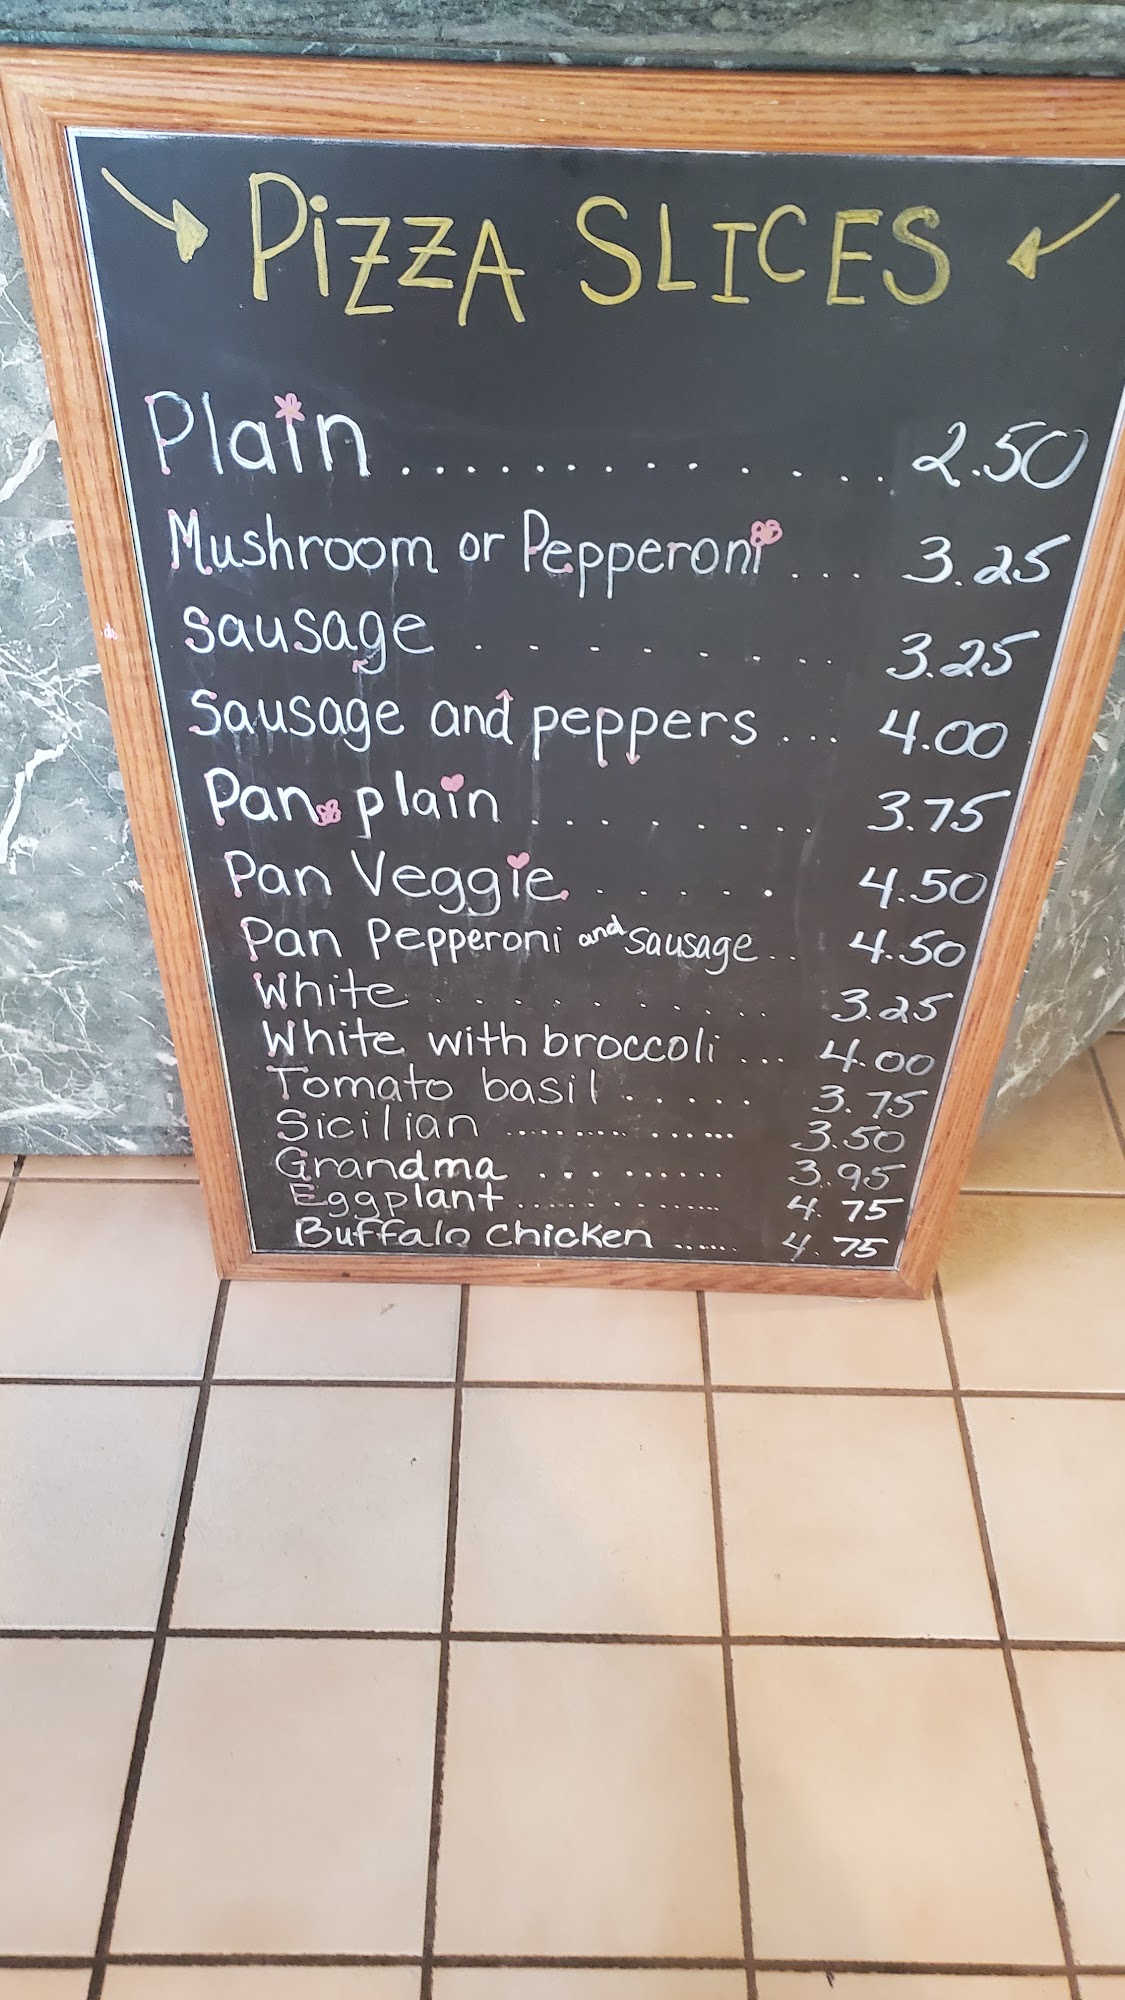 PiZZA SLICES
Plain .............. 2.50
Mushroom or Pepperoni ... 3.25
Sausage ......... 3.25
Sausage and peppers ... 4.00
Pan plain ......... 3.75
Pan Veggie ...... 4.50
Pan Pepperoni and sausage .. 4.50
White .......... 3.25
White with broccoli ... 4.00
Tomato basil ...... 3.75
Sicilian ............... 3.50
Grandma ......... 3.95
Eggplant .............. 4.75
Buffalo Chicken ...... 4.75